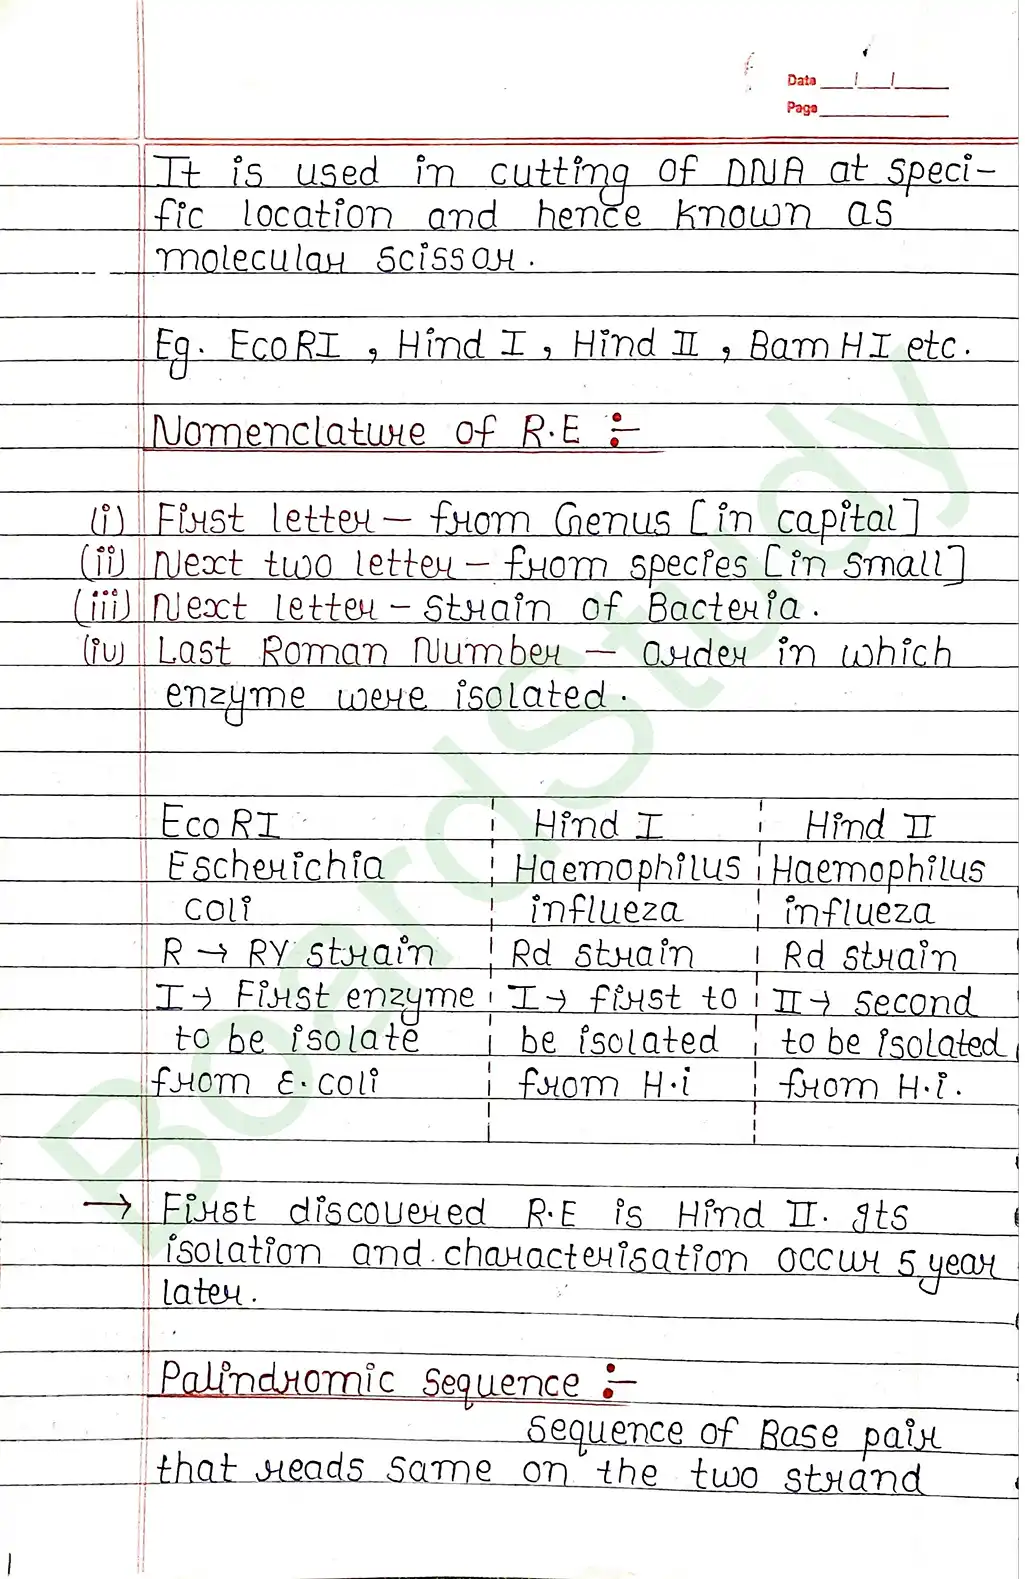 Date __/__/____
Page __________
It is used in cutting of DNA at speci-
fic location and hence known as
molecular scissor.
Eg. EcoRI , Hind I , Hind II , Bam HI etc.
Nomenclature of R.E :-
(i) First letter - from Genus [in capital]
(ii) Next two letter - from species [in small]
(iii) Next letter - strain of Bacteria.
(iv) Last Roman Number - order in which
enzyme were isolated.
Eco RI Hind I Hind II
Escherichia Haemophilus Haemophilus
coli influeza influeza
R → RY strain Rd strain Rd strain
I → First enzyme I → first to II → second
to be isolate be isolated to be isolated
from E.coli from H.i from H.i.
→ First discovered R.E is Hind II. Its
isolation and characterisation occur 5 year
later.
Palindromic sequence :-
sequence of Base pair
that reads same on the two strand
BoardStudy